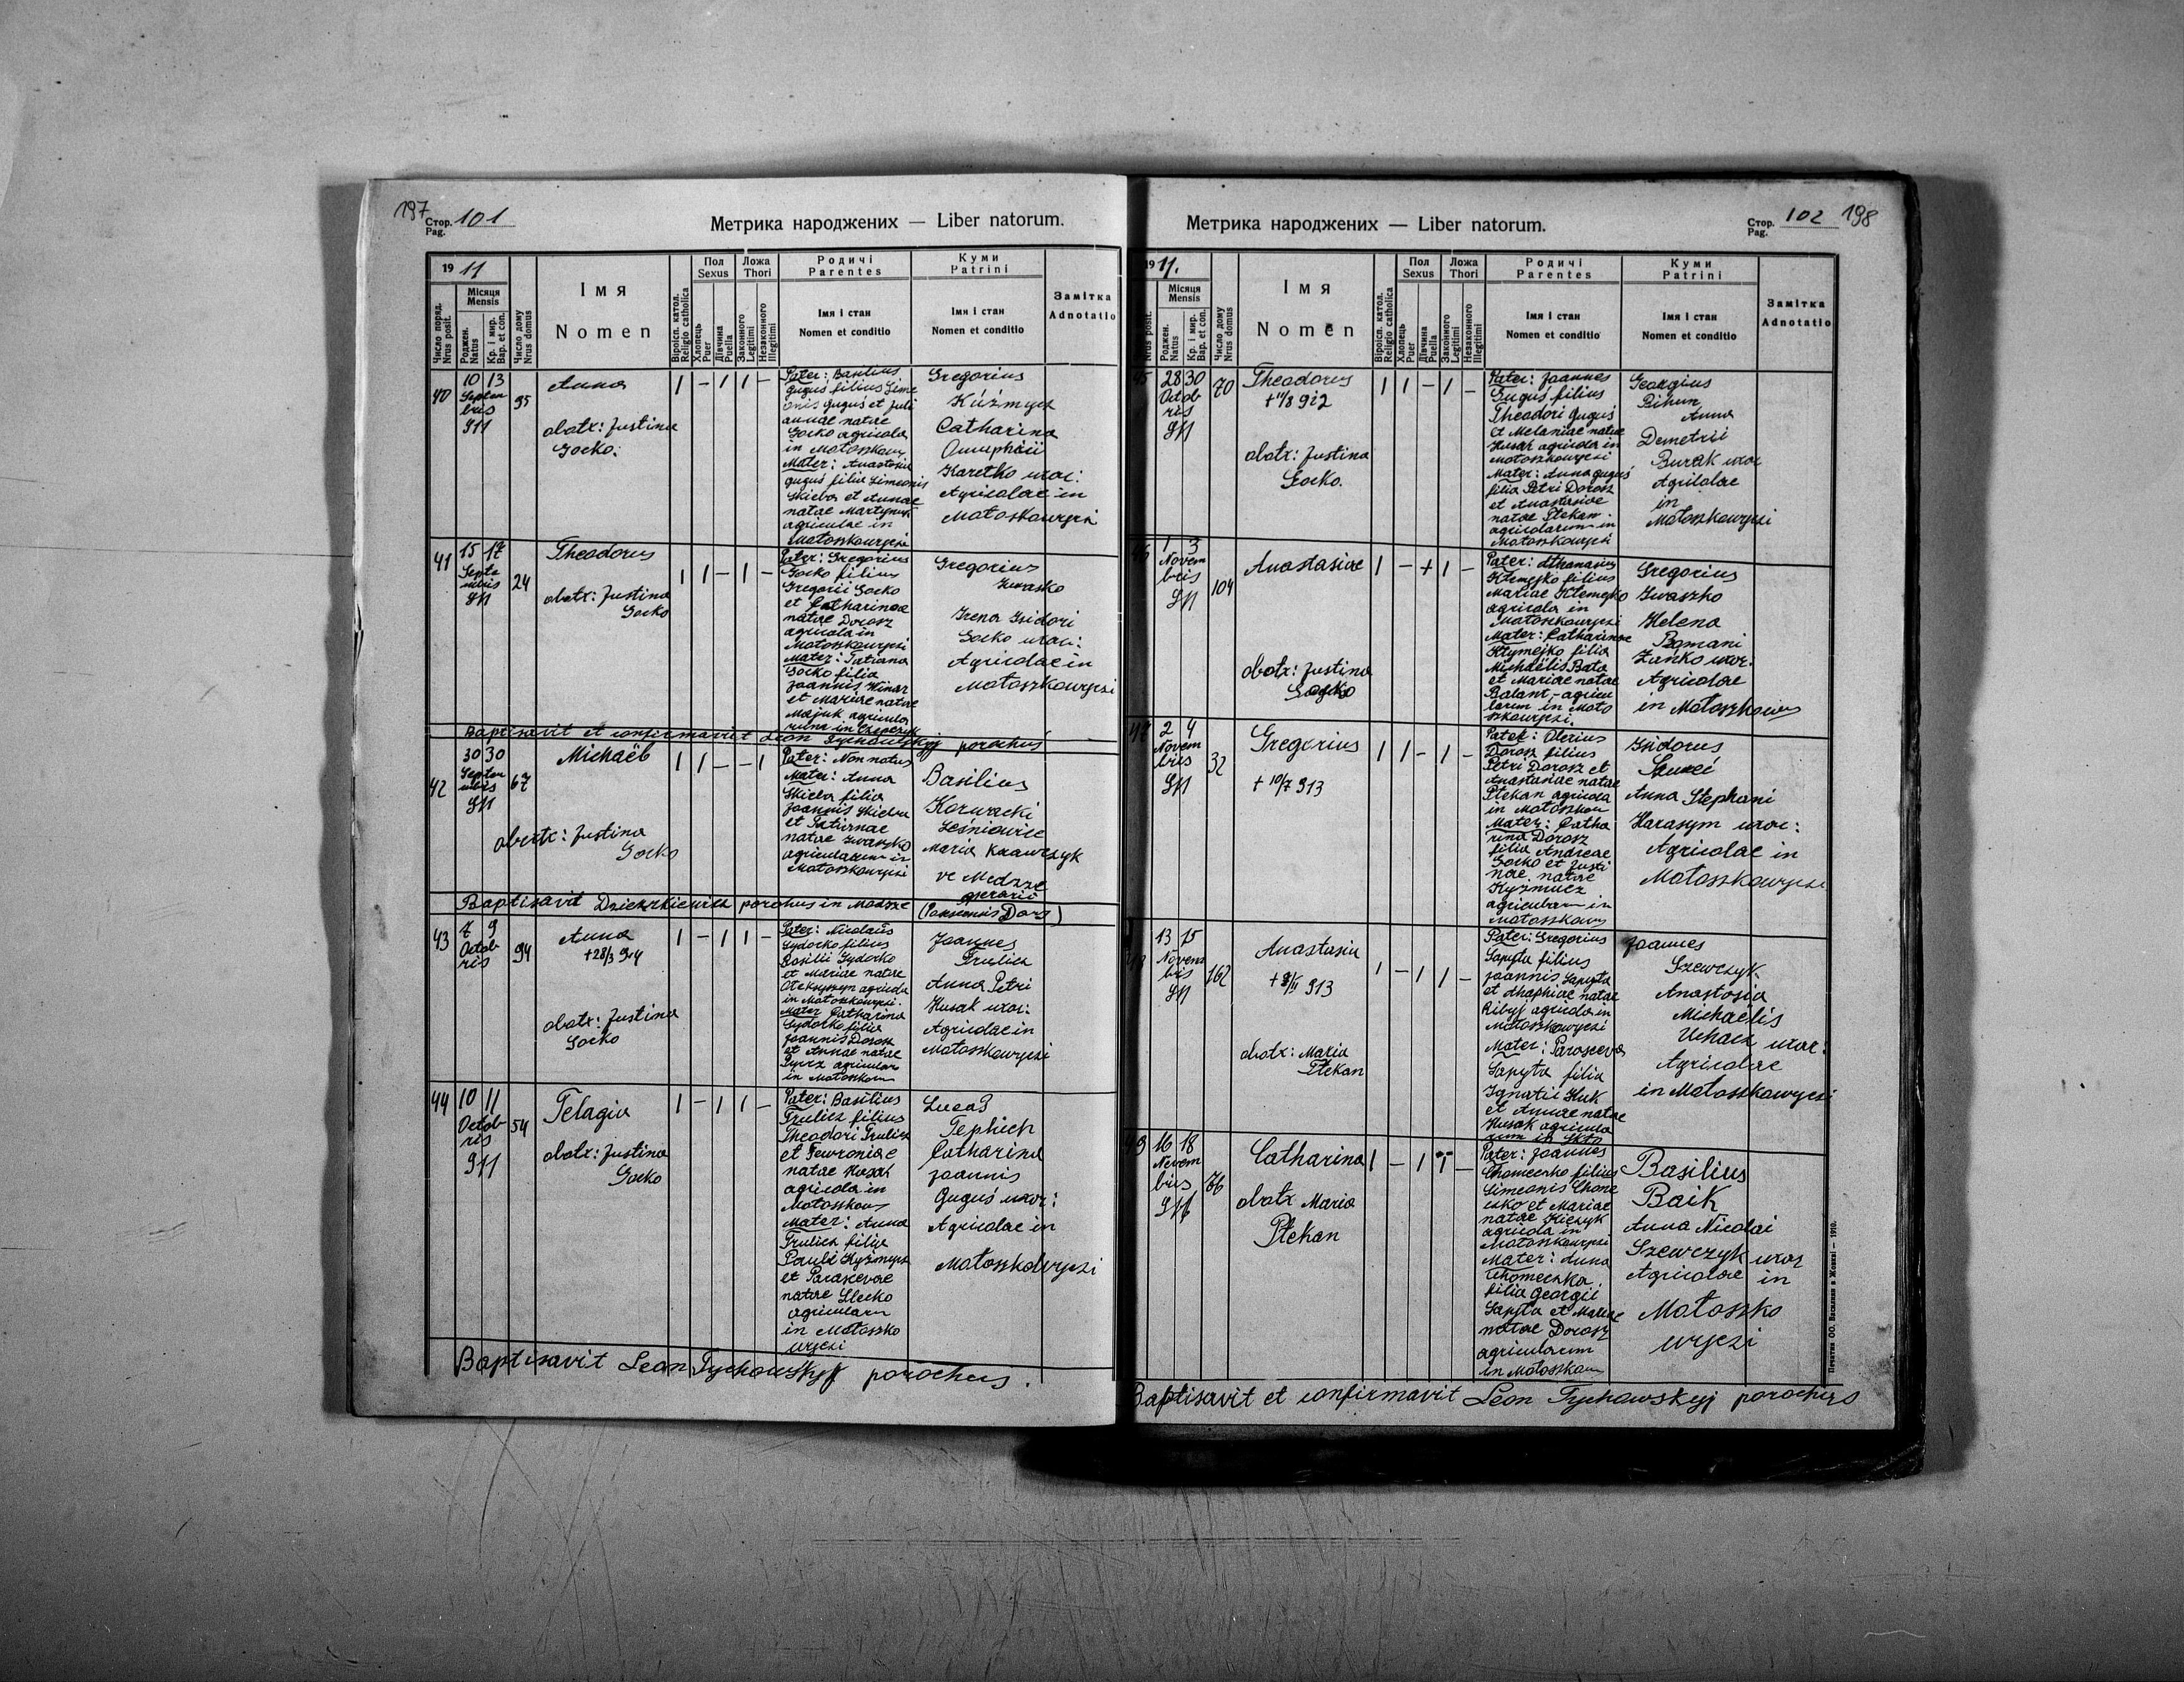 197
Стор. Pag. 101
Метрика народжених — Liber natorum.
19 11
Число поряд. Nrus posit.
Місяця Mensis
Роджен. Natus
Кр. і мир. Bap. et con.
Число дому Nrus domus
Імя
Nomen
Віроісп. катол. Religio catholica
Пол Sexus
Хлопець Puer
Дівчина Puella
Ложа Thori
Законного Legitimi
Незаконного Illegitimi
Родичі Parentes
Імя і стан
Nomen et conditio
Куми Patrini
Імя і стан
Nomen et conditio
Замітка
Adnotatio
40
10 13
Septem
bris
911
95
Anna
obstx: Justina
Gocko.
1 – 1 1 –
Pater: Basilius
Guguś filius Sime
onis Guguś et Juli
annae natae
Gocko agricola
in Mołoszkow
Mater: Anastasia
Guguś filia Simeonis
Skiba et Annae
natae
agricolae in
Mołoszkowyczi
Gregorius
Kuźmycz
Catharina
Onuphrii
Karetko uxor:
Agricolae in
Mołoszkowyczi
41
15 17
Septe
mbris
911
24
Theodorus
obstx: Justina
Gocko
1 1 – 1 –
Pater: Gregorius
Gocko filius
Gregorii Gocko
et Catharinae
natae Dorosz
agricola in
Mołoszkowyczi
Mater: Tatiana
Gocko filia
Joannis
et Mariae natae
Majuk agricola
rum in
Gregorius
Iwasko
Irena Isidori
Gocko uxor:
Agricolae in
Mołoszkowyczi
Baptisavit et confirmavit Leon Tychowskyj parochus
42
30 30
Septem
mbris
911
67
Michaël
obstx: Justina
Gocko
1 1 – – 1
Pater: Non natus
Mater: Anna
Skieba filia
Joannis Skieba
et Tatianae
natae Iwaszko
agricolarum in
Mołoszkowyczi
Basilius
Leśniowice
Maria Krawczyk
ve Medzze
operarii
Baptisavit parochus in Modzze
43
7 9
Octob
ris
94
Anna
+28/3 914
obstx: Justina
Gocko
1 – 1 1 –
Pater: Nicolaus
Sydorko filius
Basilii Sydorko
et Mariae natae
Ołeksyszyn agricola
in Mołoszkowyczi.
Mater Catharina
Sydorko filia
Joannis Dorosz
et Annae natae
agricolarum
in Mołoszkow
Joannes
Anna Petri
Husak uxor:
Agricolae in
Mołoszkowyczi
44
10 11
Octob
ris
911
54
Pelagia
obstx: Justina
Gocko
1 – 1 1 –
Pater: Basilius
filius
Theodori
et Fewroniae
natae Husak
agricola in
Mołoszkow
Mater: Anna
filia
Pauli Kyźmycz
et Parascevae
natae
agricolarum
in Mołoszko
wyczi
Lucas
Catharina
Joannis
Guguś uxor:
Agricolae in
Mołoszkowyczi
Baptisavit Leon Tychowskyj parochus.
Метрика народжених — Liber natorum.
Стор. Pag. 102 198
19 11.
Число поряд. Nrus posit.
Місяця Mensis
Роджен. Natus
Кр. і мир. Bap. et con.
Число дому Nrus domus
Імя
Nomen
Віроісп. катол. Religio catholica
Пол Sexus
Хлопець Puer
Дівчина Puella
Ложа Thori
Законного Legitimi
Незаконного Illegitimi
Родичі Parentes
Імя і стан
Nomen et conditio
Куми Patrini
Імя і стан
Nomen et conditio
Замітка
Adnotatio
45
28 30
Octob
ris
911
70
Theodorus
+11/8 912
obstx: Justina
Gocko.
1 1 – 1 –
Pater: Joannes
Guguś filius
Theodori Guguś
et Melaniae natae
Husak agricola in
Mołoszkowyczi
Mater: Anna Guguś
filia Petri Dorosz
et Anastasiae
natae Ptekan.
agricolarum in
Mołoszkowyczi
Georgius
Pihun
Anna
Demetrii
Burak uxor
Agricolae
in
Mołoszkowyczi
46
1 3
Novem
bris
911
104
Anastasiae
obstx: Justina
Gocko
1 – + 1 –
Pater: Athanasius
filius
Mariae
agricola in
Mołoszkowyczi
Mater: Catharinae
filia
Michaëlis Bata
et Mariae natae
Balant, agrico
larum in Moło
szkowyczi.
Gregorius
Iwaszko
Helena
Romani
Zańko uxor.
Agricolae
in Mołoszkowy
47
2 4
Novem
bris
911
32
Gregorius
+ 10/7 913
1 1 – 1 –
Pater:
Dorosz filius
Petri Dorosz et
Anastasiae natae
Ptekan agricola
in Mołoszkow
Mater: Catha
rina Dorosz
filia Andreae
Gocko et Justi
nae natae
Kyźmicz
agricolarum in
Mołoszkow
Isidorus
Anna Stephani
Harasym uxor:
Agricolae in
Mołoszkowyczi
13 15
Novem
bris
911
162
Anastasia
913
obstx: Maria
Ptekan
1 – 1 1 –
Pater: Gregorius
Sapyta filius
Joannis Sapyta
et Ahaphiae natae
Ribyj agricola in
Mołoszkowyczi
Mater: Parasceva
Sapyta filia
Ignatii Huk
et Annae natae
Husak agricola
rum in
Joannes
Szewczyk
Anastasia
Michaëlis
uxor:
Agricolae
in Mołoszkowyczi
49
16 18
Novem
bris
911
76
Catharina
obstx Maria
Ptekan
1 – 1 1 –
Pater: Joannes
Chomeczko filius
Simeonis Chome
czko et Mariae
natae Kiczyk
agricola in
Mołoszkowyczi
Mater: Anna
Chomeczko
filia Georgii
Sapyta et Mariae
natae Dorosz
agricolarum
in Mołoszkow
Basilius
Baik
Anna Nicolai
Szewczyk uxor
Agricolae in
Mołoszko
wyczi
Baptisavit et confirmavit Leon Tychowskyj parochus
Печатня ОО. Василиян в Жовкві — 1910.